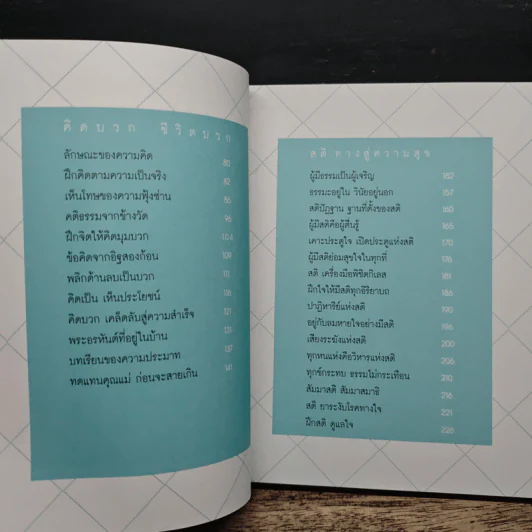 คิดบวก ชีวิตบวก
ลักษณะของความคิด 80
ฝึกคิดตามความเป็นจริง 82
เห็นโทษของความฟุ้งซ่าน 86
คติธรรมจากข้างวัด 96
ฝึกจิตให้คิดมุมบวก 104
ข้อคิดจากอิฐสองก้อน 109
พลิกด้านลบเป็นบวก 111
คิดเป็น เห็นประโยชน์ 118
คิดบวก เคล็ดลับสู่ความสำเร็จ 121
พระอรหันต์ที่อยู่ในบ้าน 131
บทเรียนของความประมาท 137
ทดแทนคุณแม่ ก่อนจะสายเกิน 141
สติ ทางสู่ความสุข
ผู้มีธรรมเป็นผู้เจริญ 152
ธรรมะอยู่ใน วินัยอยู่นอก 157
สติปัฏฐาน ฐานที่ตั้งของสติ 160
ผู้มีสติคือผู้ตื่นรู้ 165
เคาะประตูใจ เปิดประตูแห่งสติ 170
ผู้มีสติย่อมสุขใจในทุกที่ 176
สติ เครื่องมือพิชิตกิเลส 181
ฝึกใจให้มีสติทุกอิริยาบถ 186
ปาฏิหาริย์แห่งสติ 190
อยู่กับลมหายใจอย่างมีสติ 196
เสียงระฆังแห่งสติ 200
ทุกหนแห่งคือวิหารแห่งสติ 206
ทุกข์กระทบ ธรรมไม่กระเทือน 210
สัมมาสติ สัมมาสมาธิ 216
สติ ยาระงับโรคทางใจ 221
ฝึกสติ ดูแลใจ 226